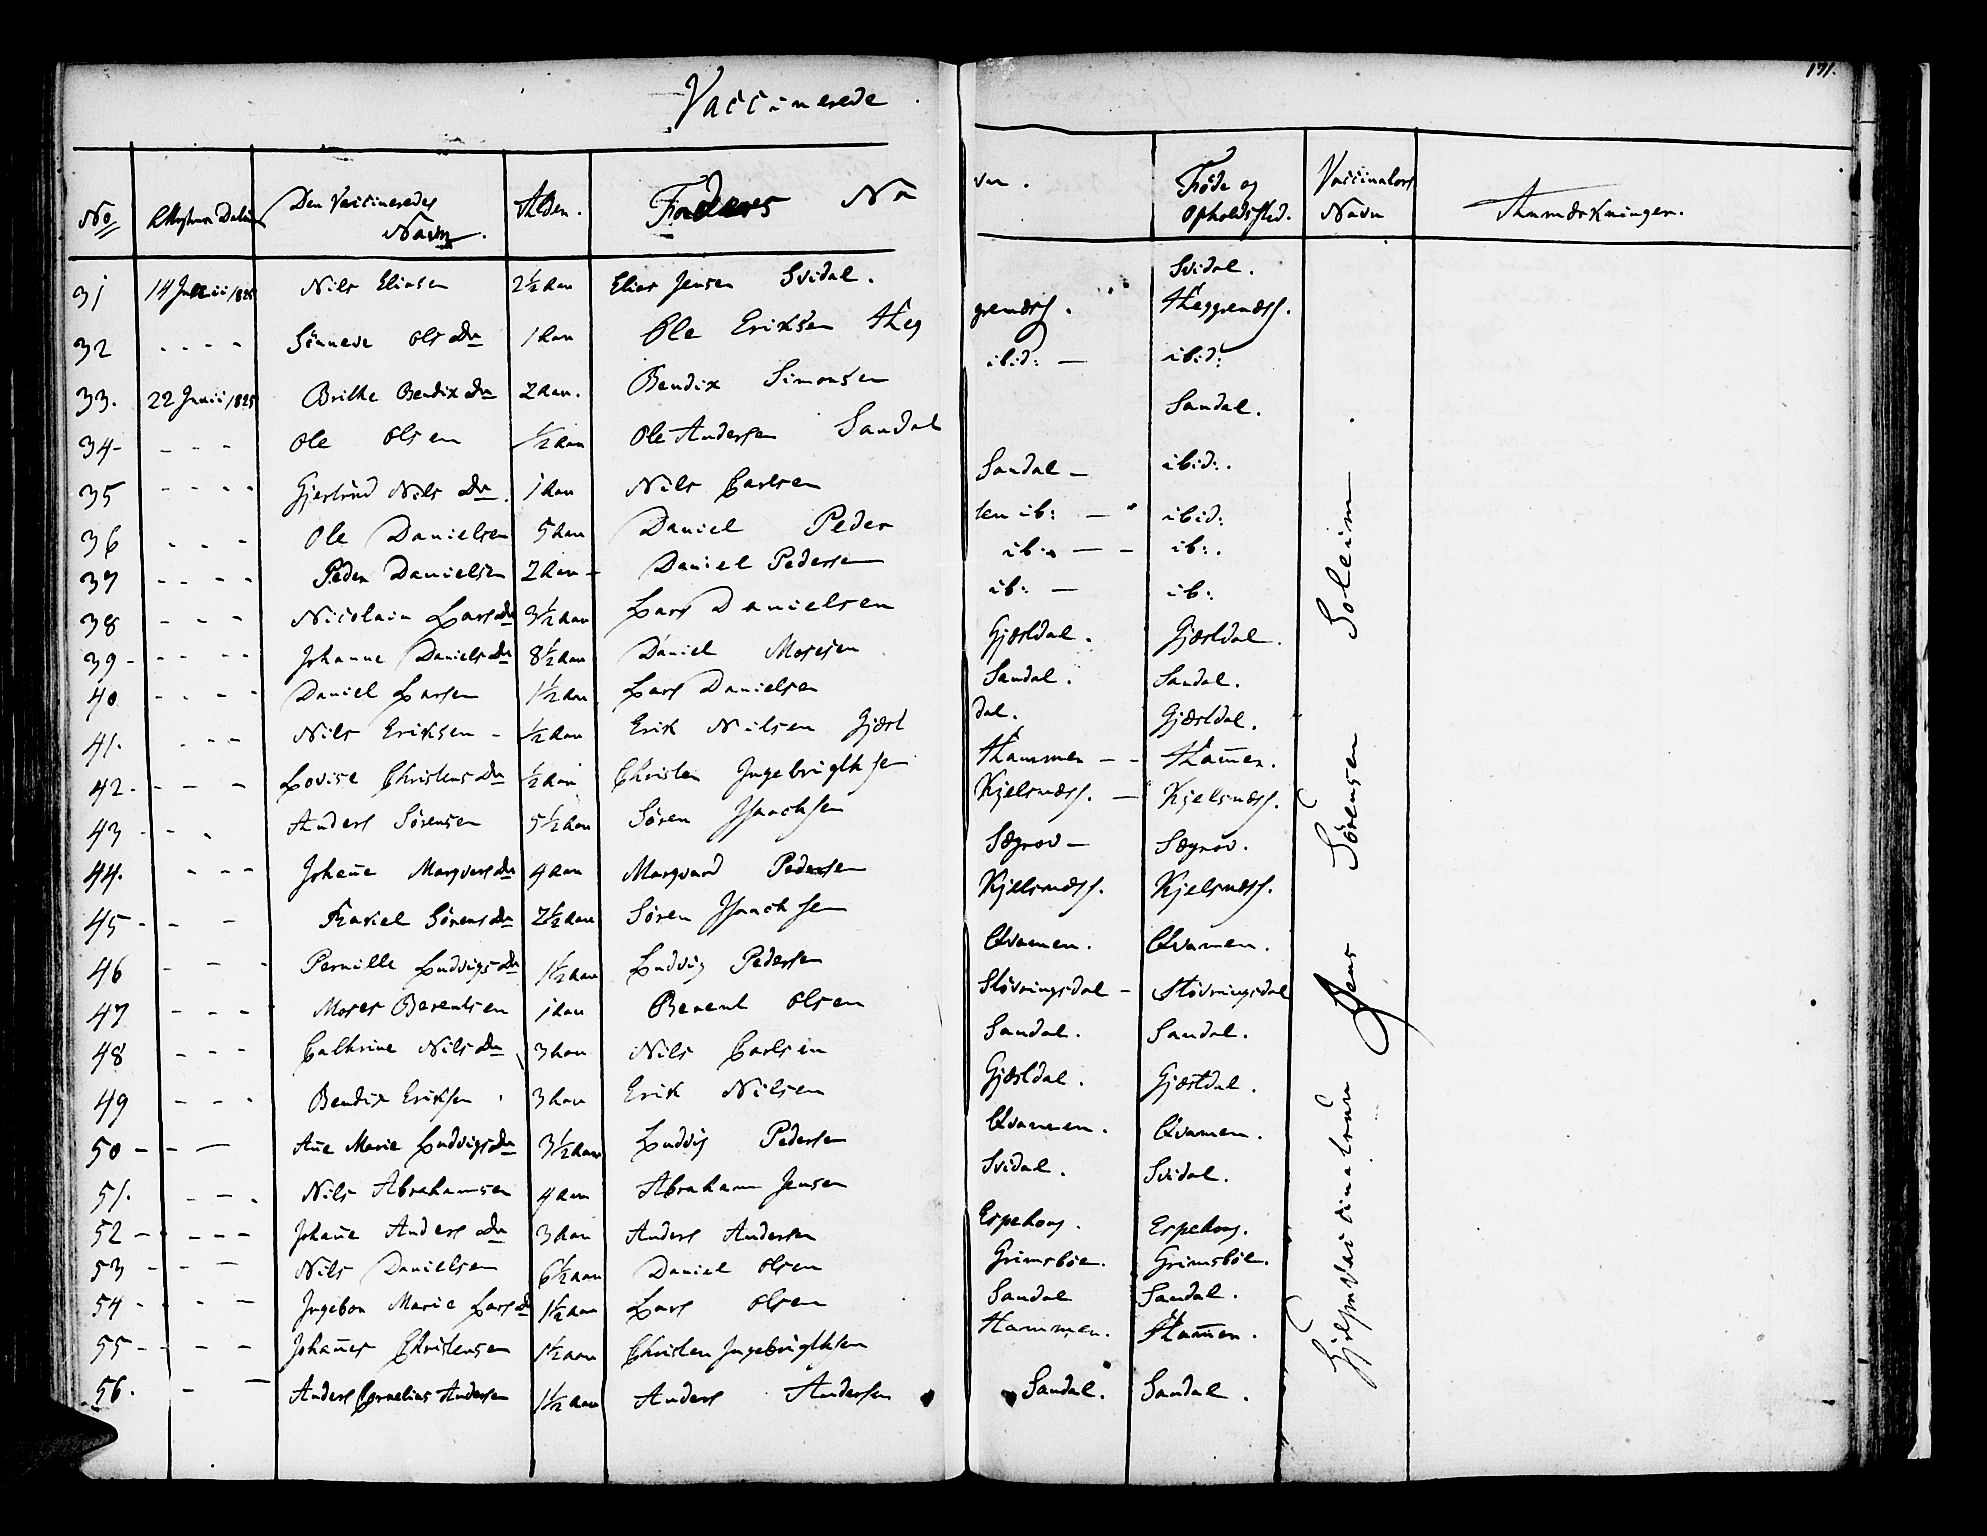 Vaccinerede
191.
No
Attestens Datum
Den Vaccineredes Navn.
Alder.
Faders Navn.
Føde og Opholdsted.
Vaccinators Navn
Anmærkninger.
31 14 Junii 1825 Nils Eliasen 2½ Aar Elias Jensen Svidal. Svidal.
32 - - - - Sünneve Ols Dr 1 Aar Ole Eriksen Heggrenæss. Heggrenæss.
33. 22 Junii 1825 Brithe Bendix Dr 2 Aar. Bendix Simonsen ibid: — ibid:
34 - - - Ole Olsen ½ Aar Ole Andersen Sandal Sandal.
35 - - - - Gjertrud Nils Dr. 1 Aar Nils Carlsen Sandal — ibid:.
36 - - - Ole Danielsen 5 Aar Daniel Pedersen ib: — ibid:
37 - - - - Peder Danielsen 2 Aar — Daniel Pedersen ib: — — ib:.
38 - - - Nicolain Lars Dr 3½ Aar Lars Danielsen ib: — ib:
39 - - - - - Johanne Daniels Dr 8½ Aar Daniel Mosesen Gjæstdal. Gjæstdal.
40 - - - - Daniel Larsen 1½ Aar Lars Danielsen Sandal. Sandal.
41. - - - Nils Eriksen - ½ Aar Erik Nilsen Gjæstdal. Gjæstdal.
42. - - - Lovise Christens Dr ½ Aar Christen Ingebrigthsen Hammen — - Ham̄en.
43 - - - Anders Sørensen 5½ Aar Søren Isaachsen Kjelsnæss. — Kjelsnæss.
44. - - - Johan̄e Marqvars Dr 4 Aar Marqvard Pedersen Sægrov — Sægrov.
45 - - - Rakel Sørens Dr 2½ Aar Søren Isaachsen Kjelsnæss. Kjelsnæss.
46 - - - Pernille Ludvigs Dr 1½ Aar Ludvig Pedersen Qvamen. Qvamen.
47 - - - Moses Berentsen 1 Aar Berent Olsen Støvringsdal — Støvringsdal
48 - - - Cathrine Nils Dr 3 Aar Nils Carlsen Sandal. Sandal.
49 - - - Bendix Eriksen 3 Aar Erik Nilsen Gjæstdal. Gjæstdal.
50 - - — An̄e Marie Ludvigs Dr 3½ Aar Ludvig Pedersen Qvammen. Qvamen.
51. - - - Nils Abrahamsen 4 Aar Abraham Jensen Svidal. Svidal.
52 - - - - Johan̄e Anders Dr 3 Aar Anders Andersen Espehoug. Espehoug.
53 - - - Nils Danielsen 6½ Aar Daniel Olsen Grimsbøe. Grimsbøe.
54 - - - - Ingebor Marie Lars D 1½ Aar Lars Olsen Sandal Sandal.
55 - - - - Johan̄es Christensen 1½ Aar Christen Ingebrigthsen Hammen. Ham̄en.
56. - — Anders Cornelius Andersen 1½ Aar Anders Andersen Sandal. Sandal.
Hjelpevaccinateur Jens Sørensen Soleim